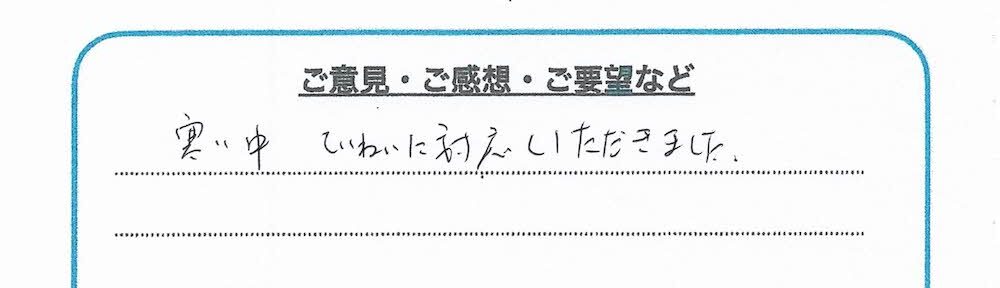 ご意見・ご感想・ご要望など
寒い中 ていねいに対応いただきました。